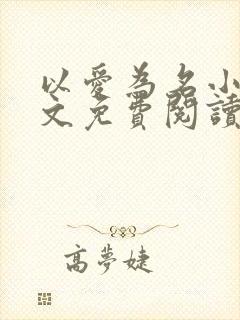 以愛為名小
文免費閱讀
高夢婕